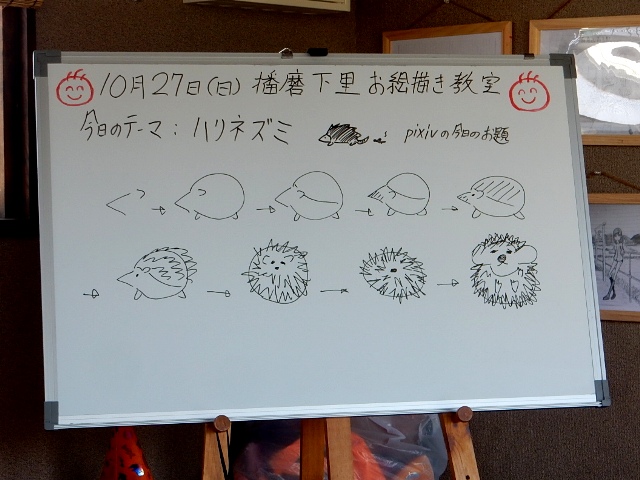 10月27日(日) 播磨下里 お絵描き教室
今日のテーマ：ハリネズミ pixivの今日のお題